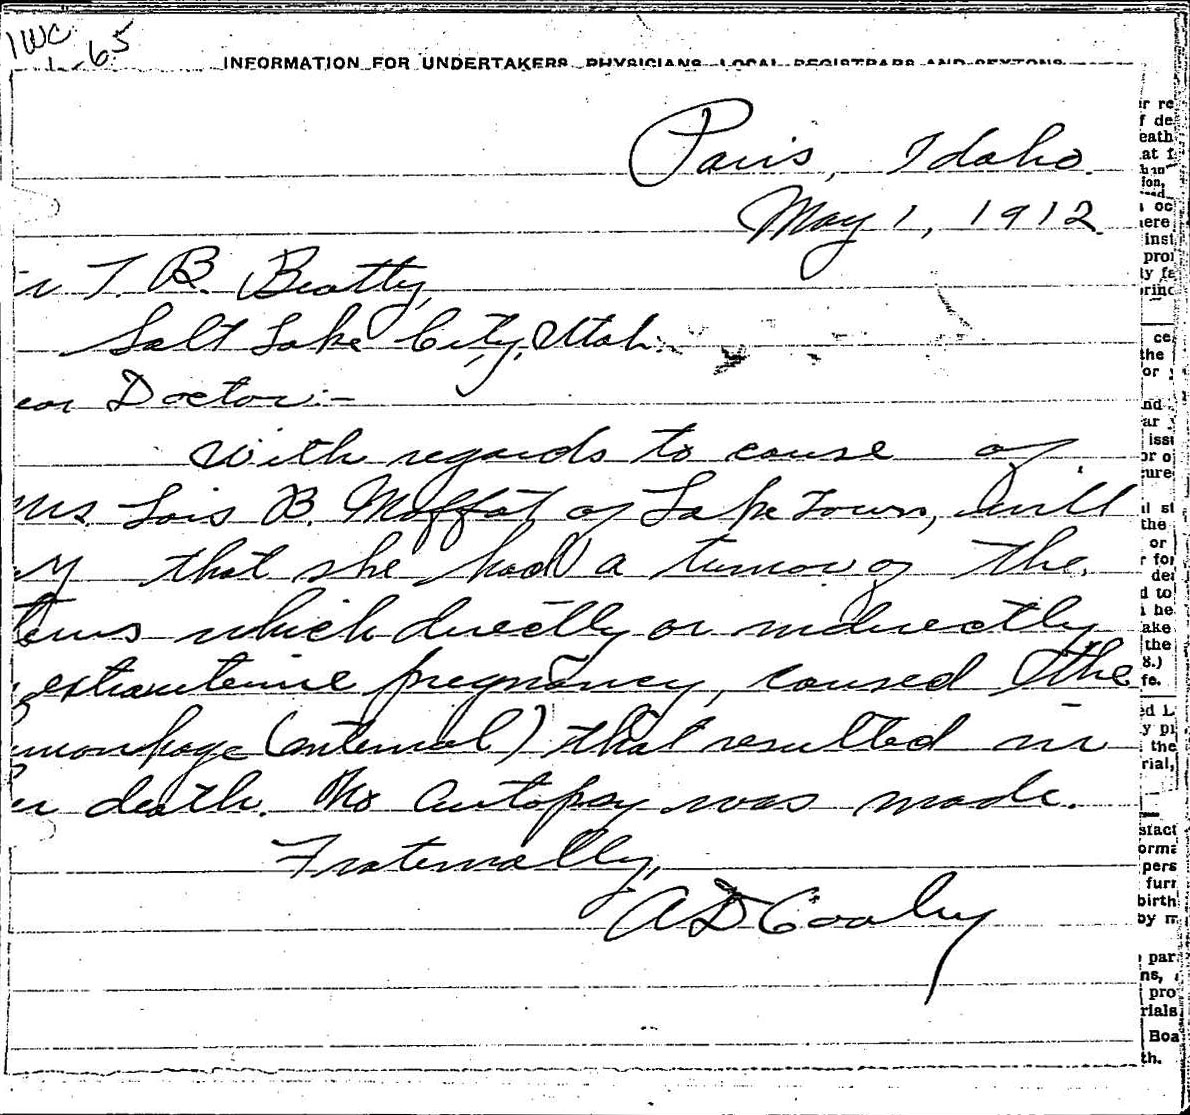 IWC
1-65
INFORMATION FOR UNDERTAKERS, PHYSICIANS, LOCAL REGISTRARS AND SEXTONS
Paris, Idaho.
May 1, 1912.
r T. B. Beatty,
Salt Lake City, Utah.
ear Doctor:-
With regards to cause of
Mrs. Lois B. Moffat, of Lake Town, will
ay that she had a tumor of the
terus which directly or indirectly
extrauterine pregnancy, caused the
morrhage (internal) that resulted in
er death. No autopsy was made.
Fraternally,
A D Cooley
r re
f de
eath
at f
han
ion,
oc
here
inst
prov
ly fa
princ
ce
the
or
nd
ar
issu
or o
ure
l st
the
or
r for
dea
d to
he
ake
the
8.)
fe.
ed L
y pr
the
rial,
sfact
orma
pers
furn
birth
by m
par
ns,
pro
rials
Boa
th.